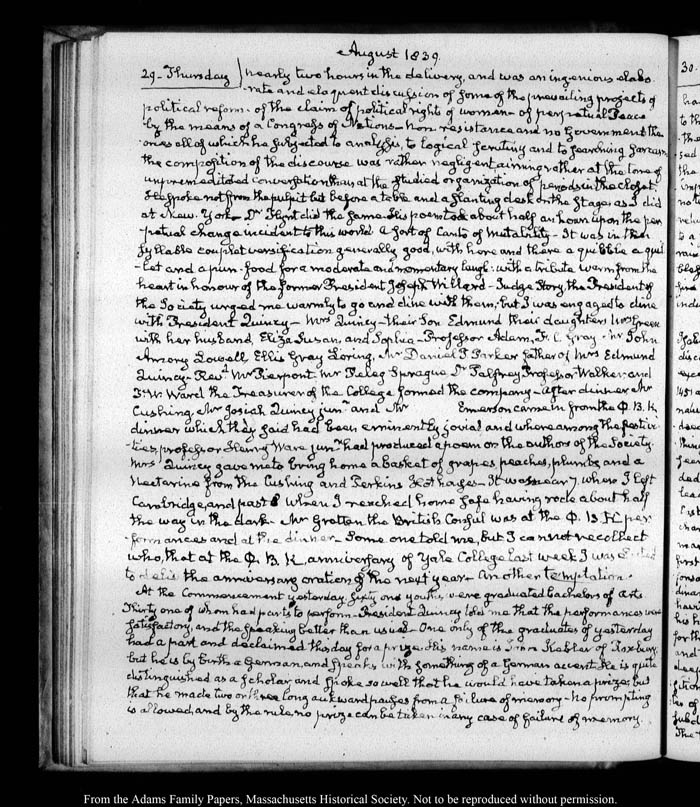 August 1839
29. Thursday nearly two hours in the delivery, and was an ingenious elabo-
-rate and eloquent discussion of some of the prevailing projects of
political reform. of the claim of political rights of women - of perpetual Peace
by the means of a Congress of Nations - non resistance and no Government the-
-ories all of which he subjected to analysis, to logical scrutiny and to
the composition of the discourse was rather negligent aiming rather at the tone of
unpremeditated conversation than at the studied organization of periods in the closet.
He spoke not from the pulpit but before a table and a slanting desk on the Stage as I did
at New-York - Dr Flint did the same. His poem took about half an hour upon the per-
-petual change incident to this world. A sort of Canto of Mutability - It was in ten
syllable couplet versification generally good, with here and there a quibble a quil-
-let and a pun - food for a moderate and momentary laugh - with a tribute warm from the
heart in honour of the former President Joseph Willard - Judge Story, the President of
the Society urged me warmly to go and dine with them, but I was engaged to dine
with President Quincy - Mrs Quincy - their Son Edmund their daughters Mrs Green
with her husband, Eliza Susan, and Sophia - Professor Adam, F. C. Gray - Mr John
Amory Lowell Ellis Gray Loring, Mr Daniel P. Parker father of Mrs Edmund
Quincy - Revd Mr Pierpont Mr Peleg Sprague Dr Palfrey Professor Walker and
Mr Ward the Treasurer of the College formed the company - After dinner Mr
Cushing, Mr Josiah Quincy junr and Mr Emerson came in from the Φ. B. K.
dinner which they said had been eminently jovial and where among the festivi-
-ties, professor Henry Ware junr had produced a poem on the authors of the Society.
Mrs Quincy gave me to bring home a basket of grapes peaches, plumbs and a
Nectarine from the Cushing and Perkins Hot houses - It was near 7, when I left
Cambridge, and past 8 when I reached home safe having rode about half
the way in the dark - Mr Grattan the British Consul was at the Φ. B. K. per-
-formances and at the dinner - Some one told me, but I cannot recollect
who, that at the Φ. B. K. anniversary of Yale College last week I was
to the anniversary oration of the next year - Another temptation.
At the Commencement yesterday, sixty one youths, were graduated bachelors of arts
Thirty one of whom had parts to perform - President Quincy told me that the performances were
satisfactory, and the speaking better than usual - One only of the graduates of yesterday
had a part and declaimed this day for a prize. His name is of Roxbury
but he is by birth a German, and speaks with something of a German accent. He is quite
distinguished as a scholar, and spoke so well that he would have taken a prize; but
that he made two or three long awkward pauses from a failure of memory - No prompting
is allowed, and by the rule no prize can be taken in any case of failure of memory.
30.
From the Adams Family Papers, Massachusetts Historical Society. Not to be reproduced without permission.